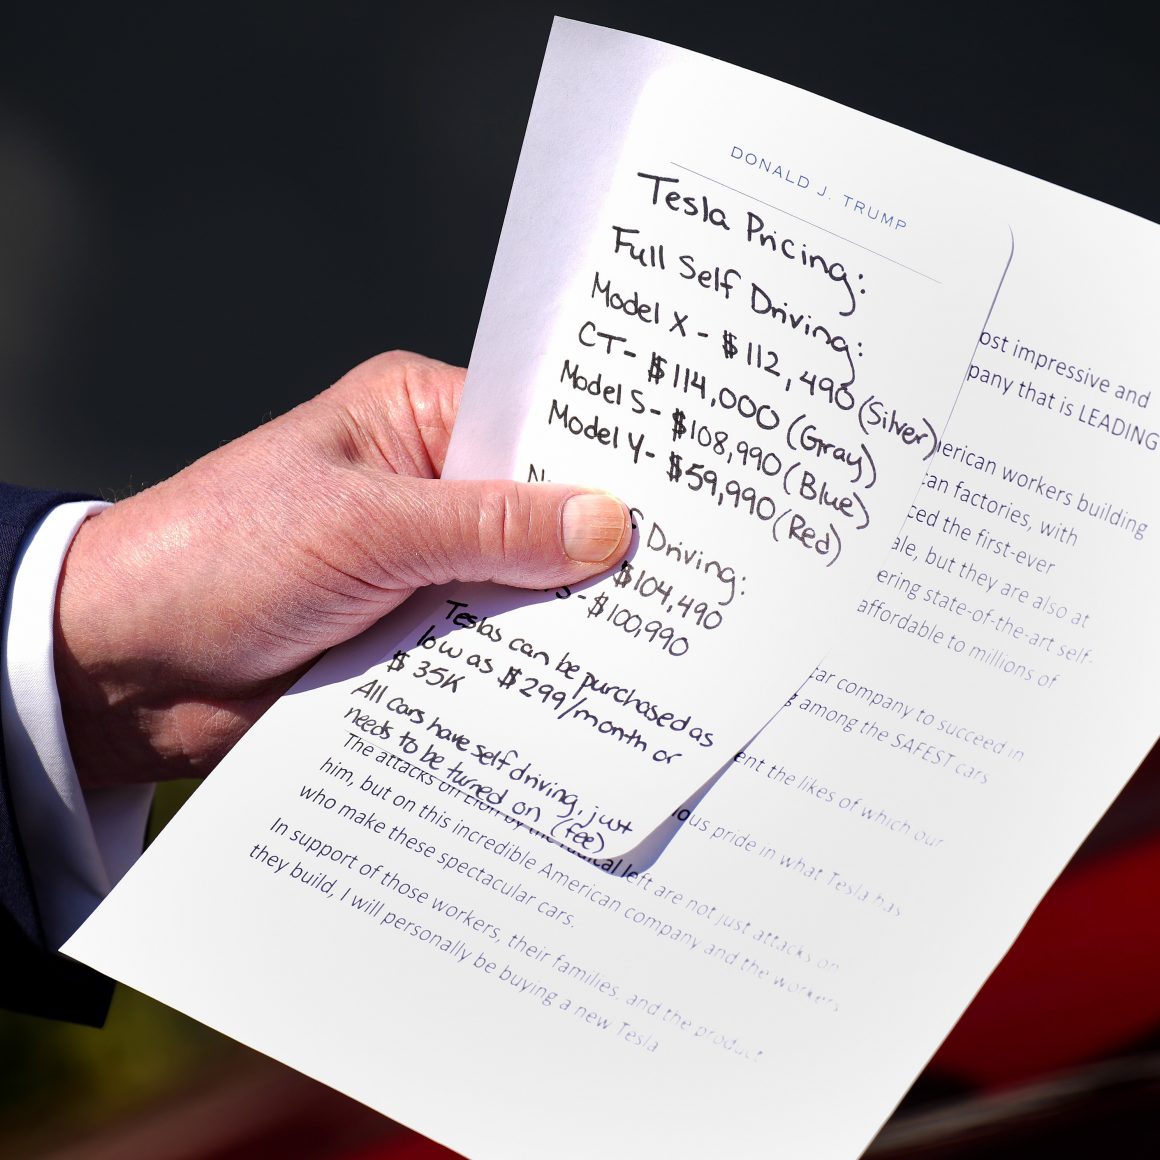 DONALD J. TRUMP
Tesla Pricing:
Full Self Driving:
Model X - $112,490 (Silver)
CT - $114,000 (Gray)
Model S - $108,990 (Blue)
Model Y - $59,990 (Red)
Driving:
$104,490
S - $100,990
Teslas can be purchased as
low as $299/month or
$35K
All cars have self driving, just
needs to be turned on (fee)
ost impressive and
pany that is LEADING
erican workers building
an factories, with
ced the first-ever
ale, but they are also at
ering state-of-the-art self-
affordable to millions of
car company to succeed in
among the SAFEST cars
ent the likes of which our
ious pride in what Tesla has
The attacks on Elon by the radical left are not just attacks on
him, but on this incredible American company and the workers
who make these spectacular cars.
In support of those workers, their families, and the product
they build, I will personally be buying a new Tesla